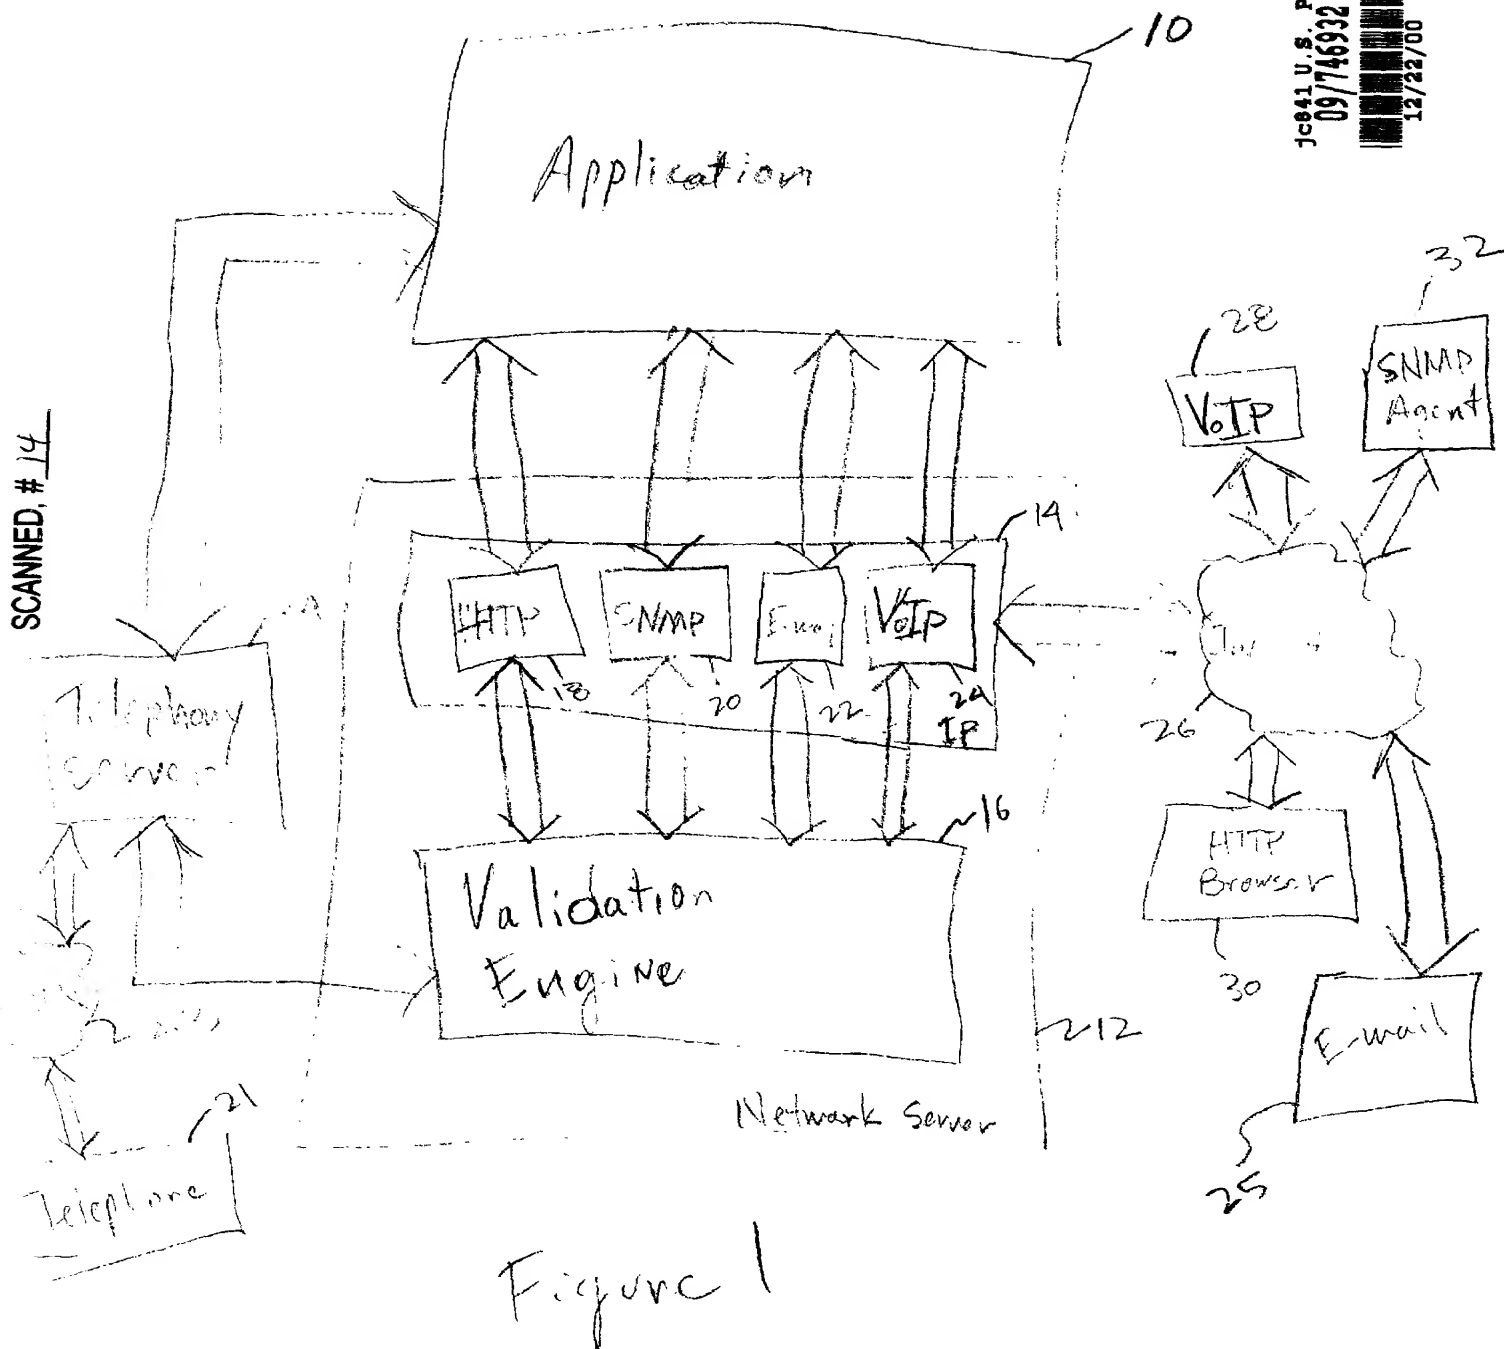 10
jc841 U.S. P
09/746932
12/22/00
Application
32
28
SNMP
Agent
VoIP
SCANNED, # 14
14
HTTP
SNMP
VoIP
18
20
22
24
IP
26
Telephony
Server
16
Validation
Engine
HTTP
Browser
30
12
E-mail
25
Network Server
21
Telephone
Figure 1